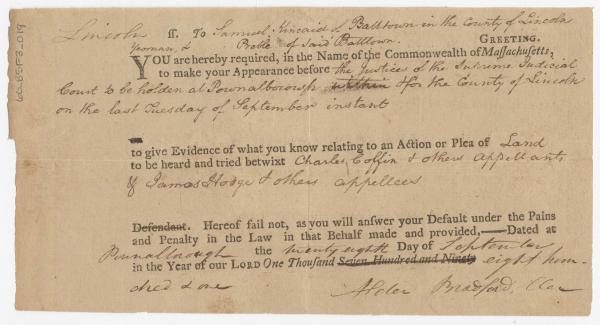 Lincoln ss. To Samuel Kincaid of Balltown in the County of Lincoln
yeoman, & Proble of said Balltown. GREETING.
YOU are hereby required, in the Name of the Commonwealth of Massachusetts,
to make your Appearance before the Justices of the Supreme Judicial
Court to be holden at Pownalborough within & for the County of Lincoln
on the last Tuesday of September instant
to give Evidence of what you know relating to an Action or Plea of Land
to be heard and tried betwixt Charles Coffin & others Appellants
& James Hodge & others appellees
Defendant. Hereof fail not, as you will answer your Default under the Pains
and Penalty in the Law in that Behalf made and provided,—Dated at
Pownalborough the twenty eighth Day of September
in the Year of our LORD One Thousand Seven Hundred and Ninety eight hun-
dred & one
Bradford, Cler
602.65F3_019